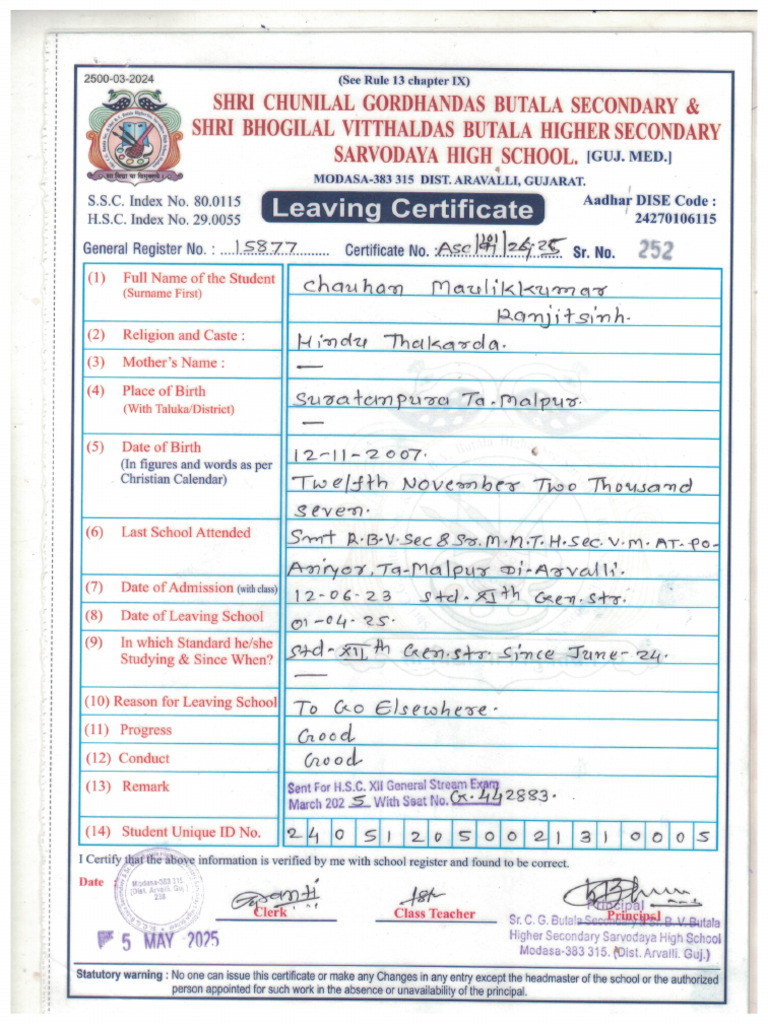 2500-03-2024
(See Rule 13 chapter IX)
SHRI CHUNILAL GORDHANDAS BUTALA SECONDARY &
SHRI BHOGILAL VITTHALDAS BUTALA HIGHER SECONDARY
SARVODAYA HIGH SCHOOL. [GUJ. MED.]
MODASA-383 315 DIST. ARAVALLI, GUJARAT.
S.S.C. Index No. 80.0115
H.S.C. Index No. 29.0055
Leaving Certificate
Aadhar DISE Code :
24270106115
General Register No. : 15877 Certificate No. : Asc 24-25 Sr. No. 252
(1) Full Name of the Student Chauhan Maulikkumar
(Surname First) Ranjitsinh.
(2) Religion and Caste : Hindu Thakarda.
(3) Mother's Name : —
(4) Place of Birth Suratanpura Ta-Malpur.
(With Taluka/District) —
(5) Date of Birth 12-11-2007.
(In figures and words as per Twelfth November Two Thousand
Christian Calendar) Seven.
(6) Last School Attended Smt R.B.V. Sec & Sr. M.M.T. H. Sec. V.M. AT-PO-
Aniyor, Ta-Malpur Di-Arvalli.
(7) Date of Admission (with class) 12-06-23 Std-XIth Gen.str.
(8) Date of Leaving School 01-04-25.
(9) In which Standard he/she Std-XIIth Gen.str. Since June-24.
Studying & Since When? —
(10) Reason for Leaving School To Go Elsewhere.
(11) Progress Good
(12) Conduct Good
(13) Remark Sent For H.S.C. XII General Stream Exam
March 2025 With Seat No. G.442883.
(14) Student Unique ID No. 240512050021310005
I Certify that the above information is verified by me with school register and found to be correct.
Date
Modasa-383 315.
(Dist. Arvalli, Guj.)
Clerk Class Teacher Principal
5 MAY 2025
Principal
Sr. C. G. Butala Secondary & Sr. B. V. Butala
Higher Secondary Sarvodaya High School
Modasa-383 315. (Dist. Arvalli. Guj.)
Statutory warning : No one can issue this certificate or make any Changes in any entry except the headmaster of the school or the authorized
person appointed for such work in the absence or unavailability of the principal.